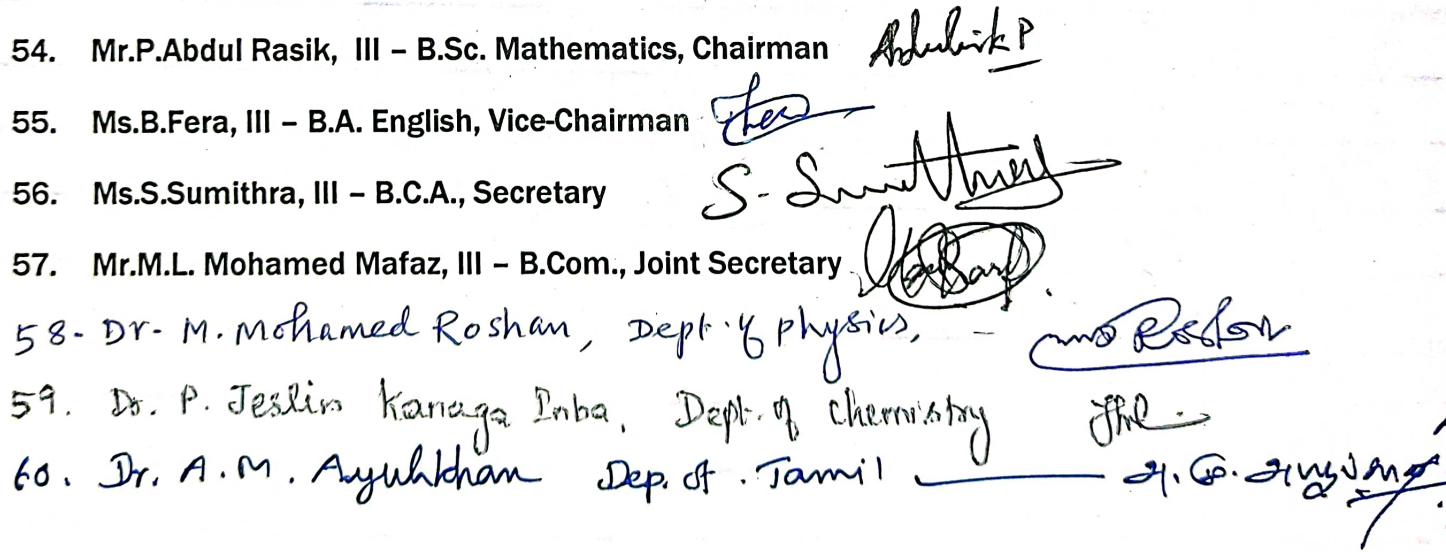 54. Mr.P.Abdul Rasik, III – B.Sc. Mathematics, Chairman
55. Ms.B.Fera, III – B.A. English, Vice-Chairman
56. Ms.S.Sumithra, III – B.C.A., Secretary S-
57. Mr.M.L. Mohamed Mafaz, III – B.Com., Joint Secretary
58- Dr- M. Mohamed Roshan, Dept. of physics, -
59. Dr. P. Jeslin Kanaga Inba, Dept. of chemistry
60. Dr. A.M. Ayubkhan Dep. of . Tamil